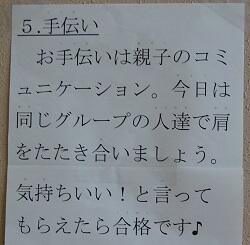 5.手伝い
　お手伝いは親子のコミ
ュニケーション。今日は
同じグループの人達で肩
をたたき合いましょう。
気持ちいい！と言って
もらえたら合格です♪